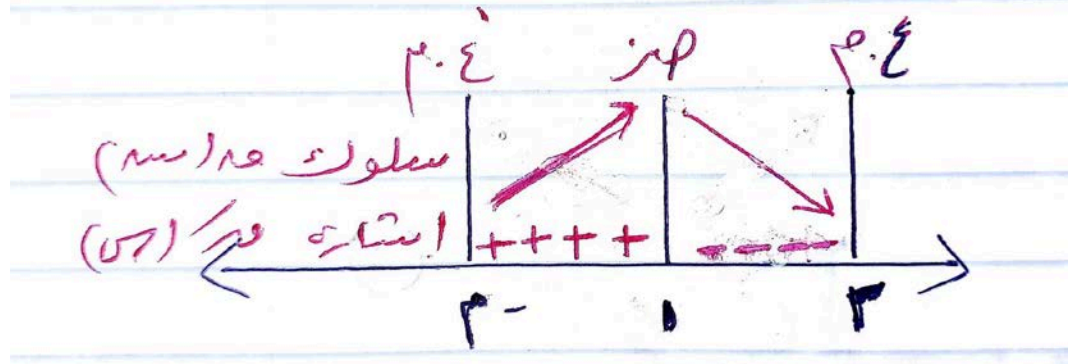 غ.م صفر غ.م
سلوك هـ(س)
إشارة هـَ(س) ++++ ----
-٣ ١ ٣